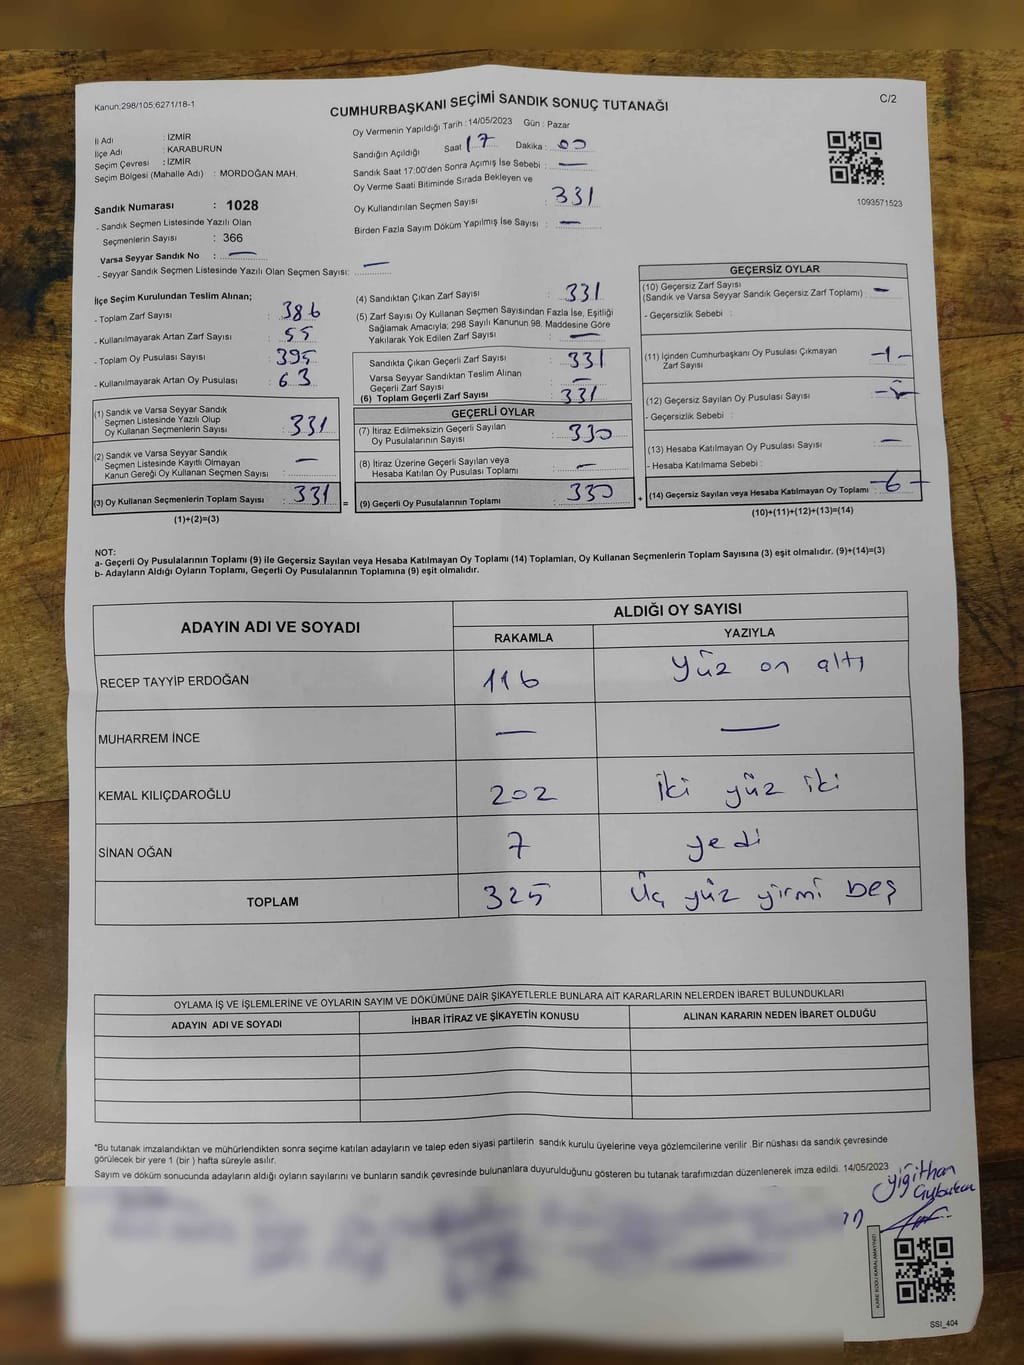 Kanun:298/105;6271/18-1
C/2
CUMHURBAŞKANI SEÇİMİ SANDIK SONUÇ TUTANAĞI
İl Adı : İZMİR
İlçe Adı : KARABURUN
Seçim Çevresi : İZMİR
Seçim Bölgesi (Mahalle Adı) : MORDOĞAN MAH.
Sandık Numarası : 1028
- Sandık Seçmen Listesinde Yazılı Olan
Seçmenlerin Sayısı : 366
Varsa Seyyar Sandık No : —
- Seyyar Sandık Seçmen Listesinde Yazılı Olan Seçmen Sayısı: —
Oy Vermenin Yapıldığı Tarih : 14/05/2023 Gün : Pazar
Sandığın Açıldığı Saat 17 Dakika : 00
Sandık Saat 17:00'den Sonra Açımış İse Sebebi : —
Oy Verme Saati Bitiminde Sırada Bekleyen ve
Oy Kullandırılan Seçmen Sayısı : 331
Birden Fazla Sayım Döküm Yapılmış İse Sayısı : —
1093571523
İlçe Seçim Kurulundan Teslim Alınan;
- Toplam Zarf Sayısı : 386
- Kullanılmayarak Artan Zarf Sayısı : 55
- Toplam Oy Pusulası Sayısı : 395
- Kullanılmayarak Artan Oy Pusulası : 63
(1) Sandık ve Varsa Seyyar Sandık
Seçmen Listesinde Yazılı Olup
Oy Kullanan Seçmenlerin Sayısı : 331
(2) Sandık ve Varsa Seyyar Sandık
Seçmen Listesinde Kayıtlı Olmayan
Kanun Gereği Oy Kullanan Seçmen Sayısı : —
(3) Oy Kullanan Seçmenlerin Toplam Sayısı : 331
(1)+(2)=(3)
(4) Sandıktan Çıkan Zarf Sayısı : 331
(5) Zarf Sayısı Oy Kullanan Seçmen Sayısından Fazla İse, Eşitliği
Sağlamak Amacıyla; 298 Sayılı Kanunun 98. Maddesine Göre
Yakılarak Yok Edilen Zarf Sayısı : —
Sandıkta Çıkan Geçerli Zarf Sayısı : 331
Varsa Seyyar Sandıktan Teslim Alınan
Geçerli Zarf Sayısı : —
(6) Toplam Geçerli Zarf Sayısı : 331
GEÇERLİ OYLAR
(7) İtiraz Edilmeksizin Geçerli Sayılan
Oy Pusulalarının Sayısı : 330
(8) İtiraz Üzerine Geçerli Sayılan veya
Hesaba Katılan Oy Pusulası Toplamı : —
= (9) Geçerli Oy Pusulalarının Toplamı : 330
GEÇERSİZ OYLAR
(10) Geçersiz Zarf Sayısı
(Sandık ve Varsa Seyyar Sandık Geçersiz Zarf Toplamı) : —
- Geçersizlik Sebebi :
(11) İçinden Cumhurbaşkanı Oy Pusulası Çıkmayan
Zarf Sayısı : -1-
(12) Geçersiz Sayılan Oy Pusulası Sayısı :
- Geçersizlik Sebebi :
(13) Hesaba Katılmayan Oy Pusulası Sayısı : —
- Hesaba Katılmama Sebebi :
+ (14) Geçersiz Sayılan veya Hesaba Katılmayan Oy Toplamı : -6-
(10)+(11)+(12)+(13)=(14)
NOT:
a- Geçerli Oy Pusulalarının Toplamı (9) ile Geçersiz Sayılan veya Hesaba Katılmayan Oy Toplamı (14) Toplamları, Oy Kullanan Seçmenlerin Toplam Sayısına (3) eşit olmalıdır. (9)+(14)=(3)
b- Adayların Aldığı Oyların Toplamı, Geçerli Oy Pusulalarının Toplamına (9) eşit olmalıdır.
ADAYIN ADI VE SOYADI
ALDIĞI OY SAYISI
RAKAMLA YAZIYLA
RECEP TAYYİP ERDOĞAN 116 yüz on altı
MUHARREM İNCE — —
KEMAL KILIÇDAROĞLU 202 iki yüz iki
SİNAN OĞAN 7 yedi
TOPLAM 325 Üç yüz yirmi beş
OYLAMA İŞ VE İŞLEMLERİNE VE OYLARIN SAYIM VE DÖKÜMÜNE DAİR ŞİKAYETLERLE BUNLARA AİT KARARLARIN NELERDEN İBARET BULUNDUKLARI
ADAYIN ADI VE SOYADI İHBAR İTİRAZ VE ŞİKAYETİN KONUSU ALINAN KARARIN NEDEN İBARET OLDUĞU
*Bu tutanak imzalandıktan ve mühürlendikten sonra seçime katılan adayların ve talep eden siyasi partilerin sandık kurulu üyelerine veya gözlemcilerine verilir .Bir nüshası da sandık çevresinde
görülecek bir yere 1 (bir ) hafta süreyle asılır.
Sayım ve döküm sonucunda adayların aldığı oyların sayılarını ve bunların sandık çevresinde bulunanlara duyurulduğunu gösteren bu tutanak tarafımızdan düzenlenerek imza edildi. 14/05/2023
Yiğithan
KARE KODU KARALAMAYINIZ!
SSİ_404